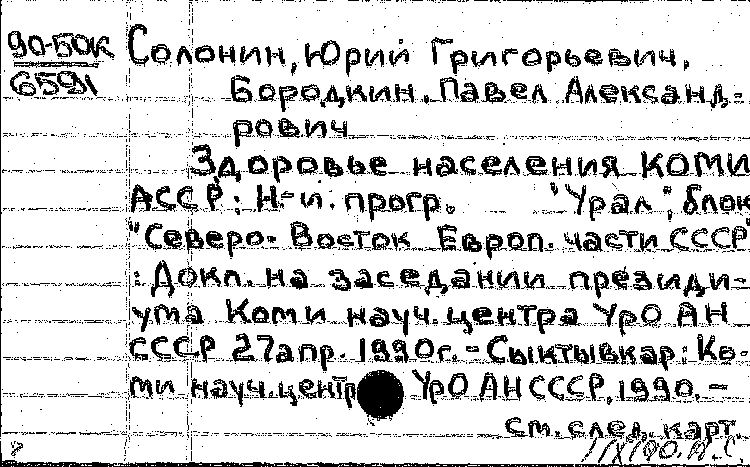 90-БОК
6591
Солонин, Юрий Григорьевич,
Бородкин, Павел Александ-
рович
Здоровье населения Коми
АССР: Н-и. прогр. "Урал", блок
"Северо-Восток Европ. части СССР"
: Докл. на заседании президи-
ума Коми науч. центра УрО АН
СССР 27 апр. 1990г. - Сыктывкар: Ко-
ми науч. центр УрО АН СССР, 1990. -
См. след. карт.